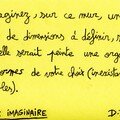 aginez, sur ce mur, un
de dimensions à définir,
elle serait peinte une
ormes de votre choix (inexista
bles).
IMAGINAIRE D-